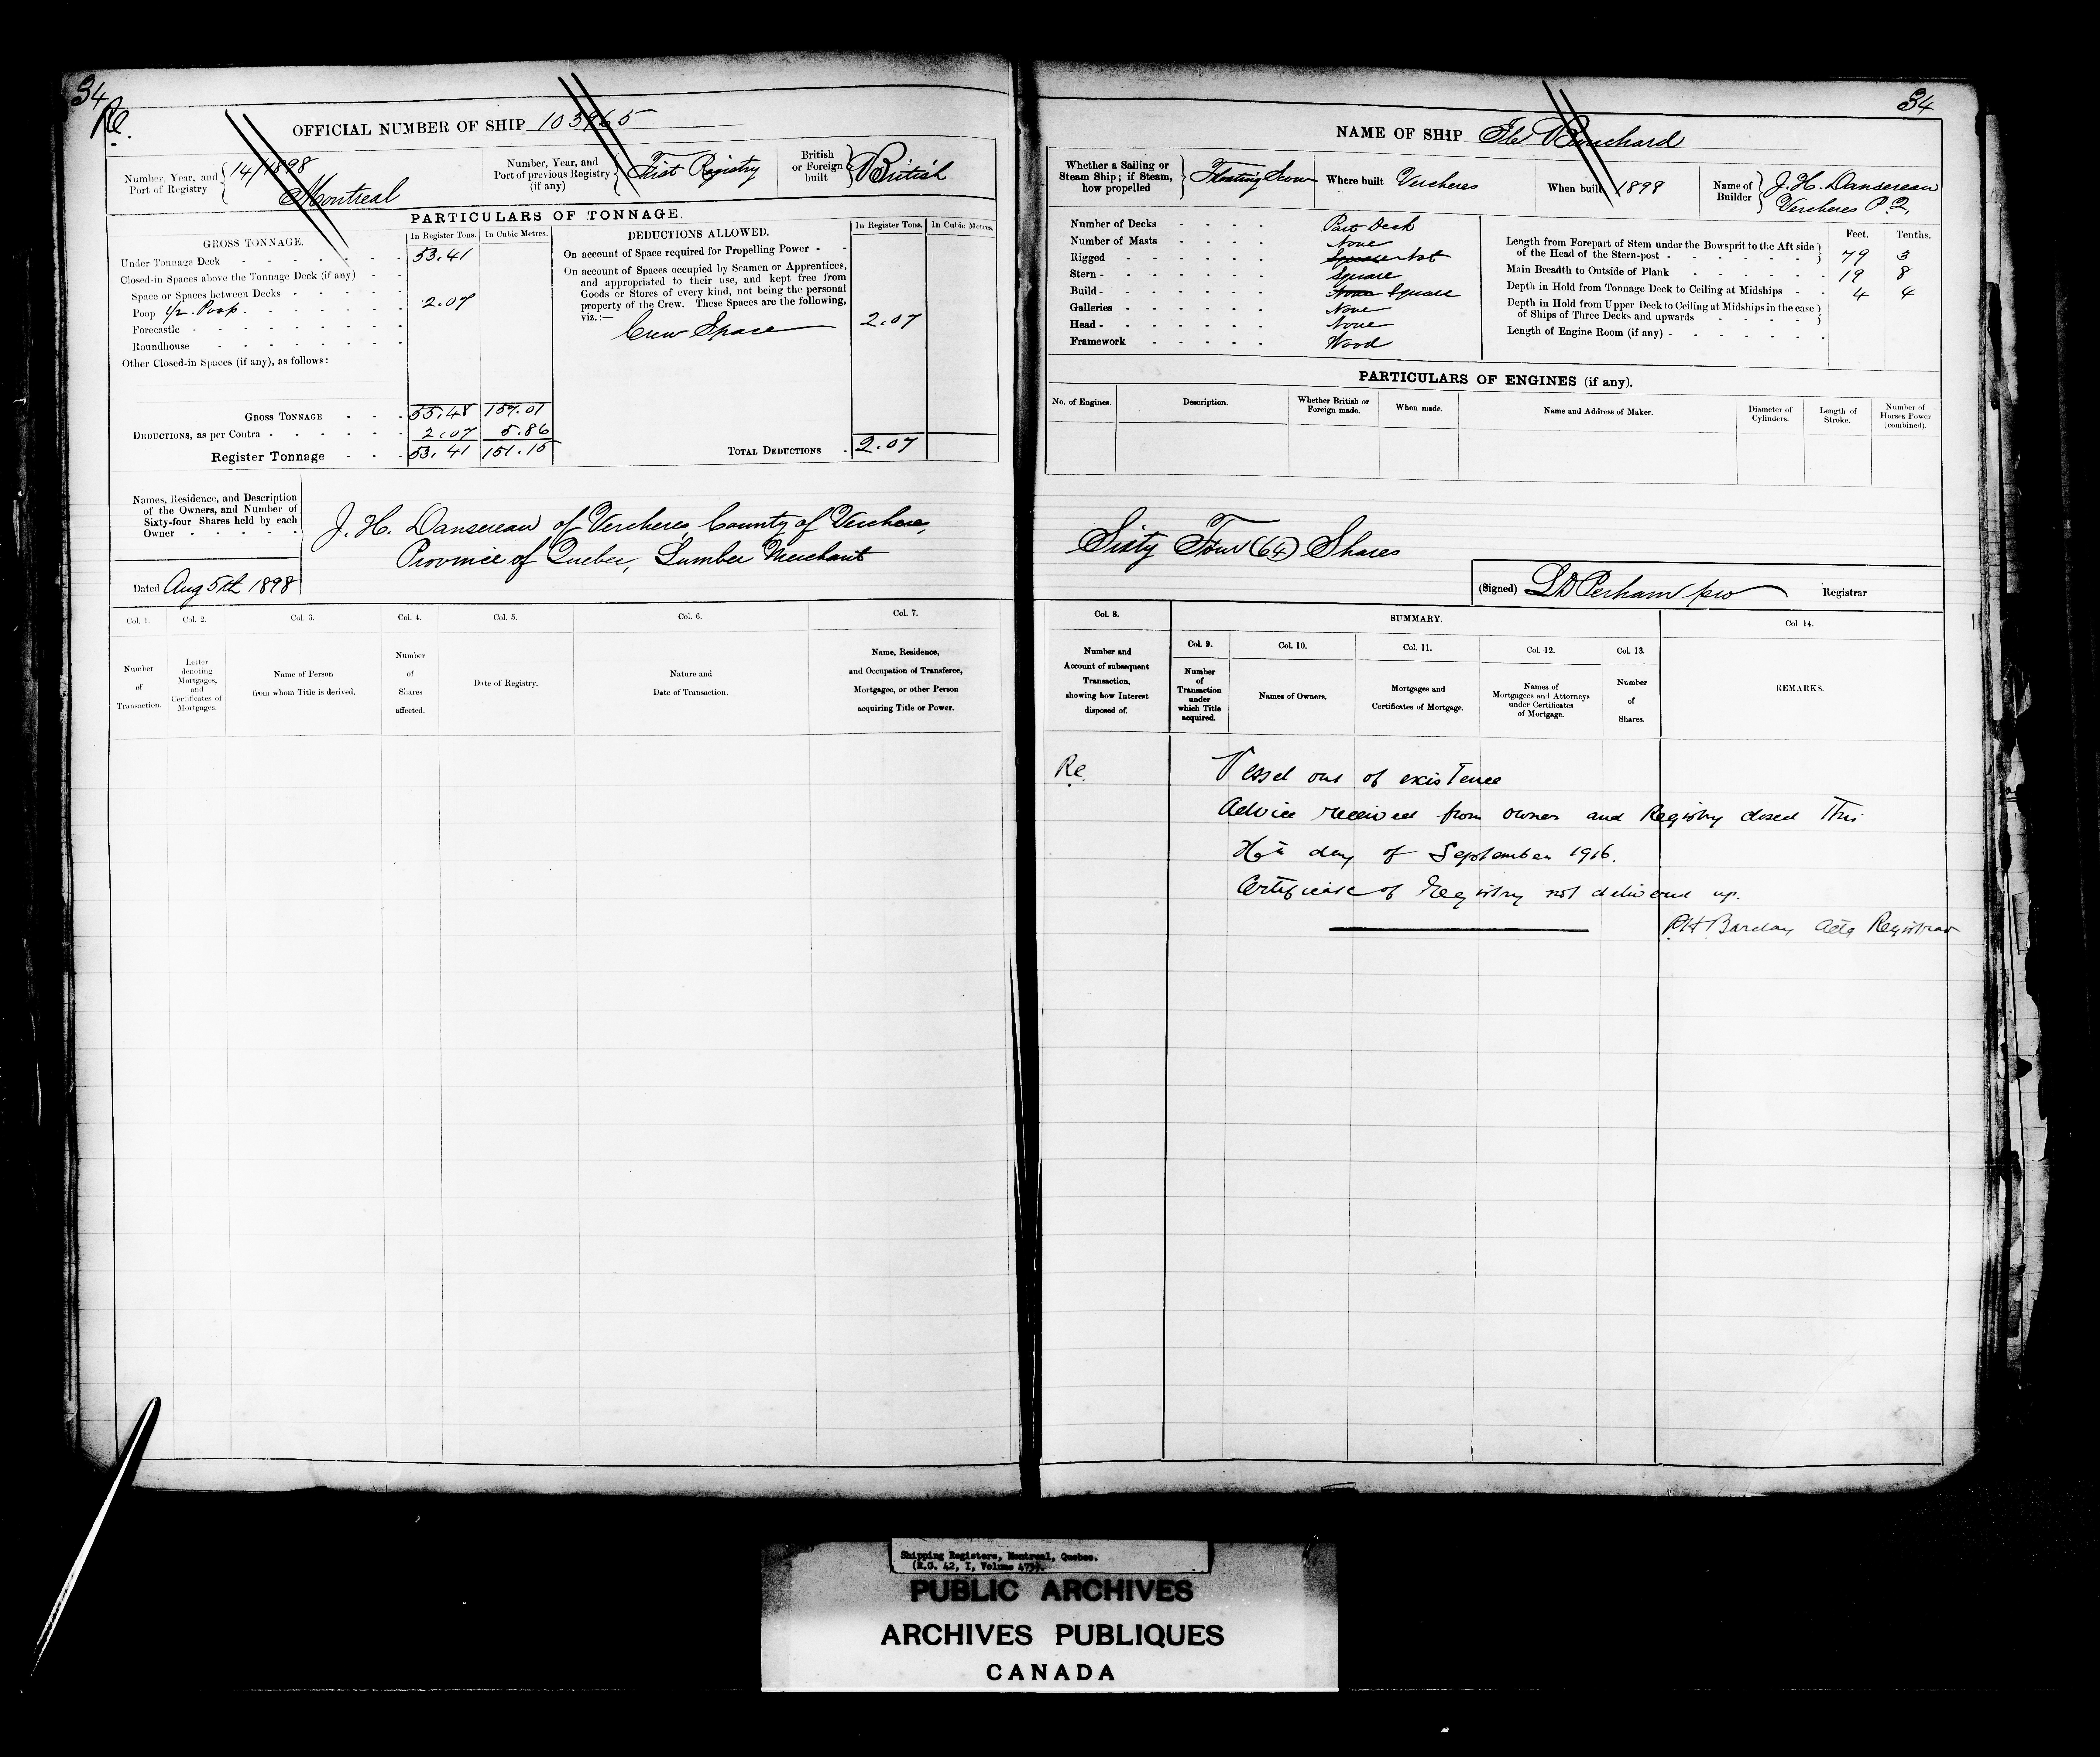 34
Re.
OFFICIAL NUMBER OF SHIP 103965
Number, Year, and Port of Registry 14/1898 Montreal
Number, Year, and Port of previous Registry (if any) First Registry
British or Foreign built British
PARTICULARS OF TONNAGE.
GROSS TONNAGE. In Register Tons. In Cubic Metres.
Under Tonnage Deck 53.41
Closed-in Spaces above the Tonnage Deck (if any)
Space or Spaces between Decks
Poop 1/2 Poop. 2.07
Forecastle
Roundhouse
Other Closed-in Spaces (if any), as follows:
GROSS TONNAGE 55.48 157.01
DEDUCTIONS, as per Contra 2.07 5.86
Register Tonnage 53.41 151.15
DEDUCTIONS ALLOWED. In Register Tons. In Cubic Metres.
On account of Space required for Propelling Power
On account of Spaces occupied by Seamen or Apprentices,
and appropriated to their use, and kept free from
Goods or Stores of every kind, not being the personal
property of the Crew. These Spaces are the following,
viz.:—
Crew Space 2.07
TOTAL DEDUCTIONS 2.07
Names, Residence, and Description
of the Owners, and Number of
Sixty-four Shares held by each
Owner
J. H. Dansereau of Vercheres, County of Vercheres,
Province of Quebec, Lumber Merchant
Dated Aug 5th 1898
Col. 1. Col. 2. Col. 3. Col. 4. Col. 5. Col. 6. Col. 7.
Number of Transaction.
Letter denoting Mortgages, and Certificates of Mortgages.
Name of Person from whom Title is derived.
Number of Shares affected.
Date of Registry.
Nature and Date of Transaction.
Name, Residence, and Occupation of Transferee, Mortgagee, or other Person acquiring Title or Power.
34
NAME OF SHIP
Whether a Sailing or Steam Ship; if Steam, how propelled Floating Scow
Where built Vercheres
When built 1898
Name of Builder J. H. Dansereau Vercheres P.Q.
Number of Decks Part Deck
Number of Masts None
Rigged Square Not
Stern Square
Build None Square
Galleries None
Head None
Framework Wood
Feet. Tenths.
Length from Forepart of Stem under the Bowsprit to the Aft side of the Head of the Stern-post 79 3
Main Breadth to Outside of Plank 19 8
Depth in Hold from Tonnage Deck to Ceiling at Midships 4 4
Depth in Hold from Upper Deck to Ceiling at Midships in the case of Ships of Three Decks and upwards
Length of Engine Room (if any)
PARTICULARS OF ENGINES (if any).
No. of Engines. Description. Whether British or Foreign made. When made. Name and Address of Maker. Diameter of Cylinders. Length of Stroke. Number of Horses Power (combined).
Sixty Four (64) Shares
(Signed) Perham Registrar
Col. 8. SUMMARY. Col 14.
Number and Account of subsequent Transaction, showing how Interest disposed of.
Col. 9. Col. 10. Col. 11. Col. 12. Col. 13.
Number of Transaction under which Title acquired.
Names of Owners.
Mortgages and Certificates of Mortgage.
Names of Mortgagees and Attorneys under Certificates of Mortgage.
Number of Shares.
REMARKS.
Re. Vessel out of existence
Advice received from owner and Registry closed this
day of September 1916.
Certificate of Registry not delivered up.
RH Barclay Actg Registrar
Shipping Registers, Montreal, Quebec.
(R.G. 42, I, Volume
PUBLIC ARCHIVES
ARCHIVES PUBLIQUES
CANADA